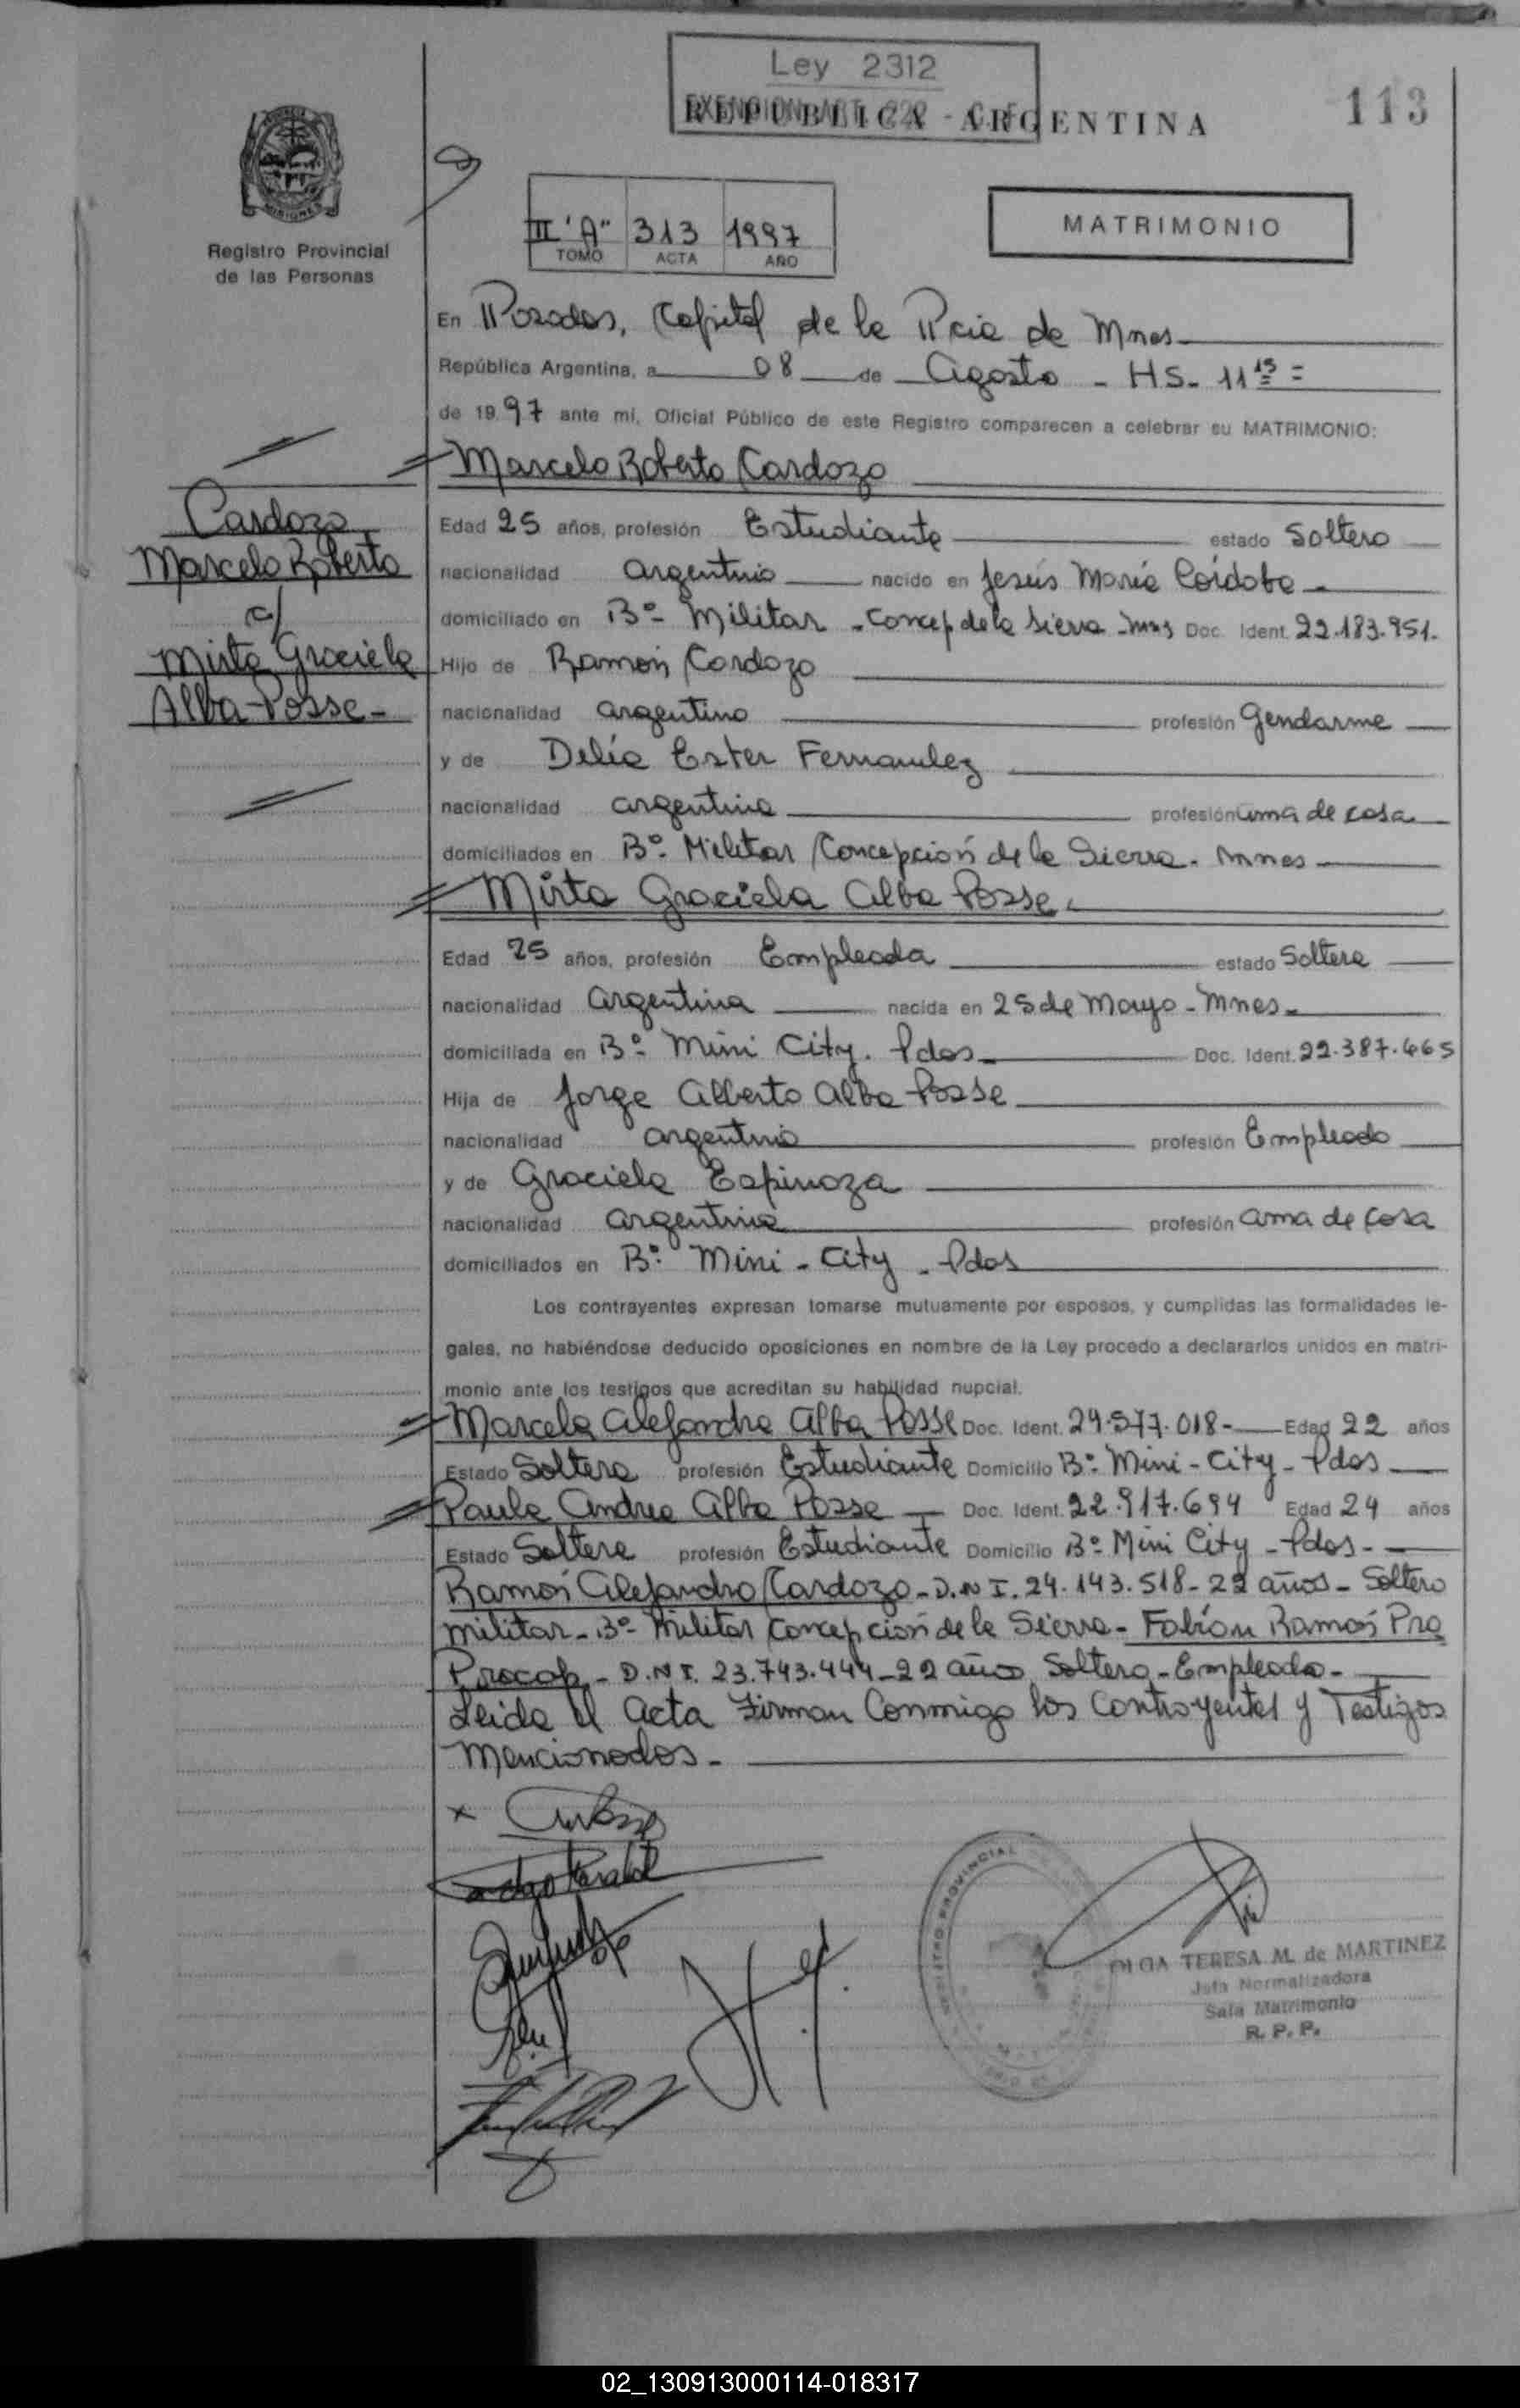 Ley 2312
REPUBLICA ARGENTINA
113
MISIONES
Registro Provincial
de las Personas
III "A" 313 1997
TOMO ACTA AÑO
MATRIMONIO
En Posadas, Capital de la Pcia de Mnes
República Argentina, a 08 de Agosto - HS- 11 15 =
de 1997 ante mí, Oficial Público de este Registro comparecen a celebrar su MATRIMONIO:
Marcelo Roberto Cardozo
Cardozo
Marcelo Roberto
c/
Mirta Graciela
Alba Posse-
Edad 25 años, profesión Estudiante estado Soltero
nacionalidad argentino nacido en Jesús María Córdoba
domiciliado en Bº- Militar - Concep de la Sierra - Mnes Doc. Ident. 22.183.951.
Hijo de Ramón Cardozo
nacionalidad argentino profesión Gendarme
y de Delia Ester Fernandez
nacionalidad argentina profesión ama de casa
domiciliados en Bº- Militar Concepción de la Sierra - Mnes
Mirta Graciela Alba Posse
Edad 25 años, profesión Empleada estado Soltera
nacionalidad argentina nacida en 25 de Mayo - Mnes-
domiciliada en Bº- Mini City. Pdas- Doc. Ident. 22.387.465
Hija de Jorge Alberto Alba Posse
nacionalidad argentino profesión Empleado
y de Graciela Espinoza
nacionalidad argentina profesión ama de casa
domiciliados en Bº Mini - City - Pdas
Los contrayentes expresan tomarse mutuamente por esposos, y cumplidas las formalidades le-
gales, no habiéndose deducido oposiciones en nombre de la Ley procedo a declararlos unidos en matri-
monio ante los testigos que acreditan su habilidad nupcial.
Marcela Alejandra Alba Posse Doc. Ident. 24.577.018- Edad 22 años
Estado Soltera profesión Estudiante Domicilio Bº- Mini - City - Pdas
Paula Andrea Alba Posse Doc. Ident. 22.917.694 Edad 24 años
Estado Soltera profesión Estudiante Domicilio Bº- Mini City - Pdas-
Ramón Alejandro Cardozo - D.N I. 24.143.518- 22 años - Soltero
militar - Bº- Militar Concepción de la Sierra - Fabián Ramón Pra
Procop - D.N I. 23.743.444 - 22 años Soltero - Empleado-
Leida el Acta Firman Conmigo los Contrayentes y Testigos
Mencionados-
REGISTRO PROVINCIAL
OLGA TERESA M. de MARTINEZ
Jefa Normalizadora
Sala Matrimonio
R. P. P.
02_130913000114-018317